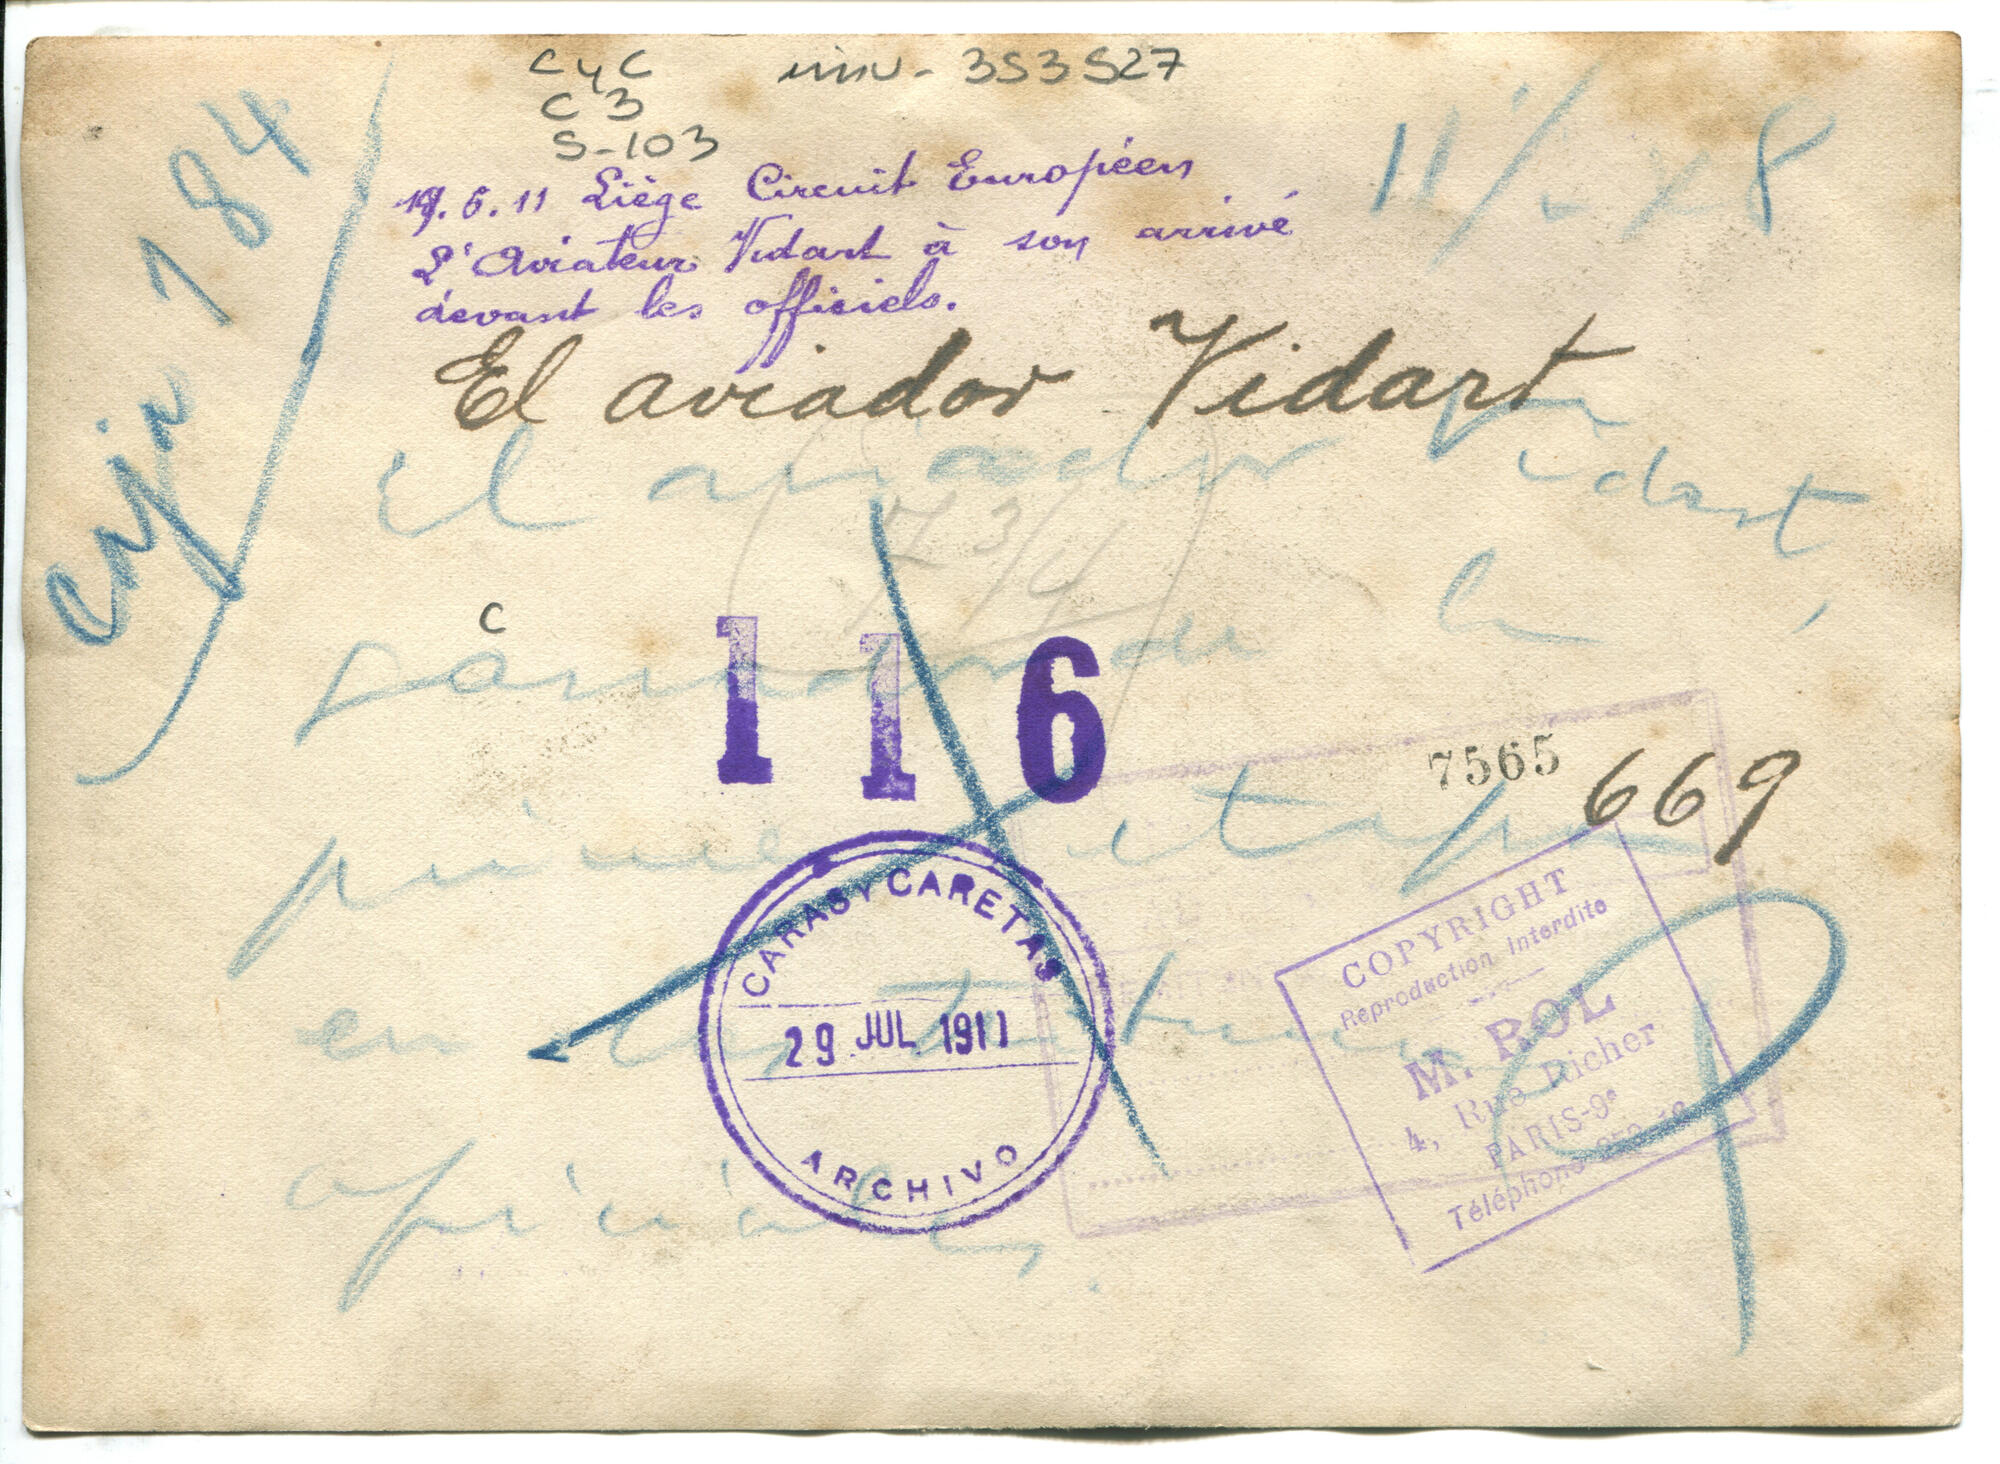 CyC inv- 353527
C3
S-103
19.6.11 Liège Circuit Européen
L'Aviateur Vidart à son arrivé
devant les officiels.
El aviador Vidart
184
El aviador Vidart,
ganador de la
c
primer etapa
en las
oficiales.
7 3/4
116
7565
669
CARAS Y CARETAS
29 JUL 1911
ARCHIVO
COPYRIGHT
Reproduction Interdite
M. ROL
4, Rue Richer
PARIS-9e
Téléphone